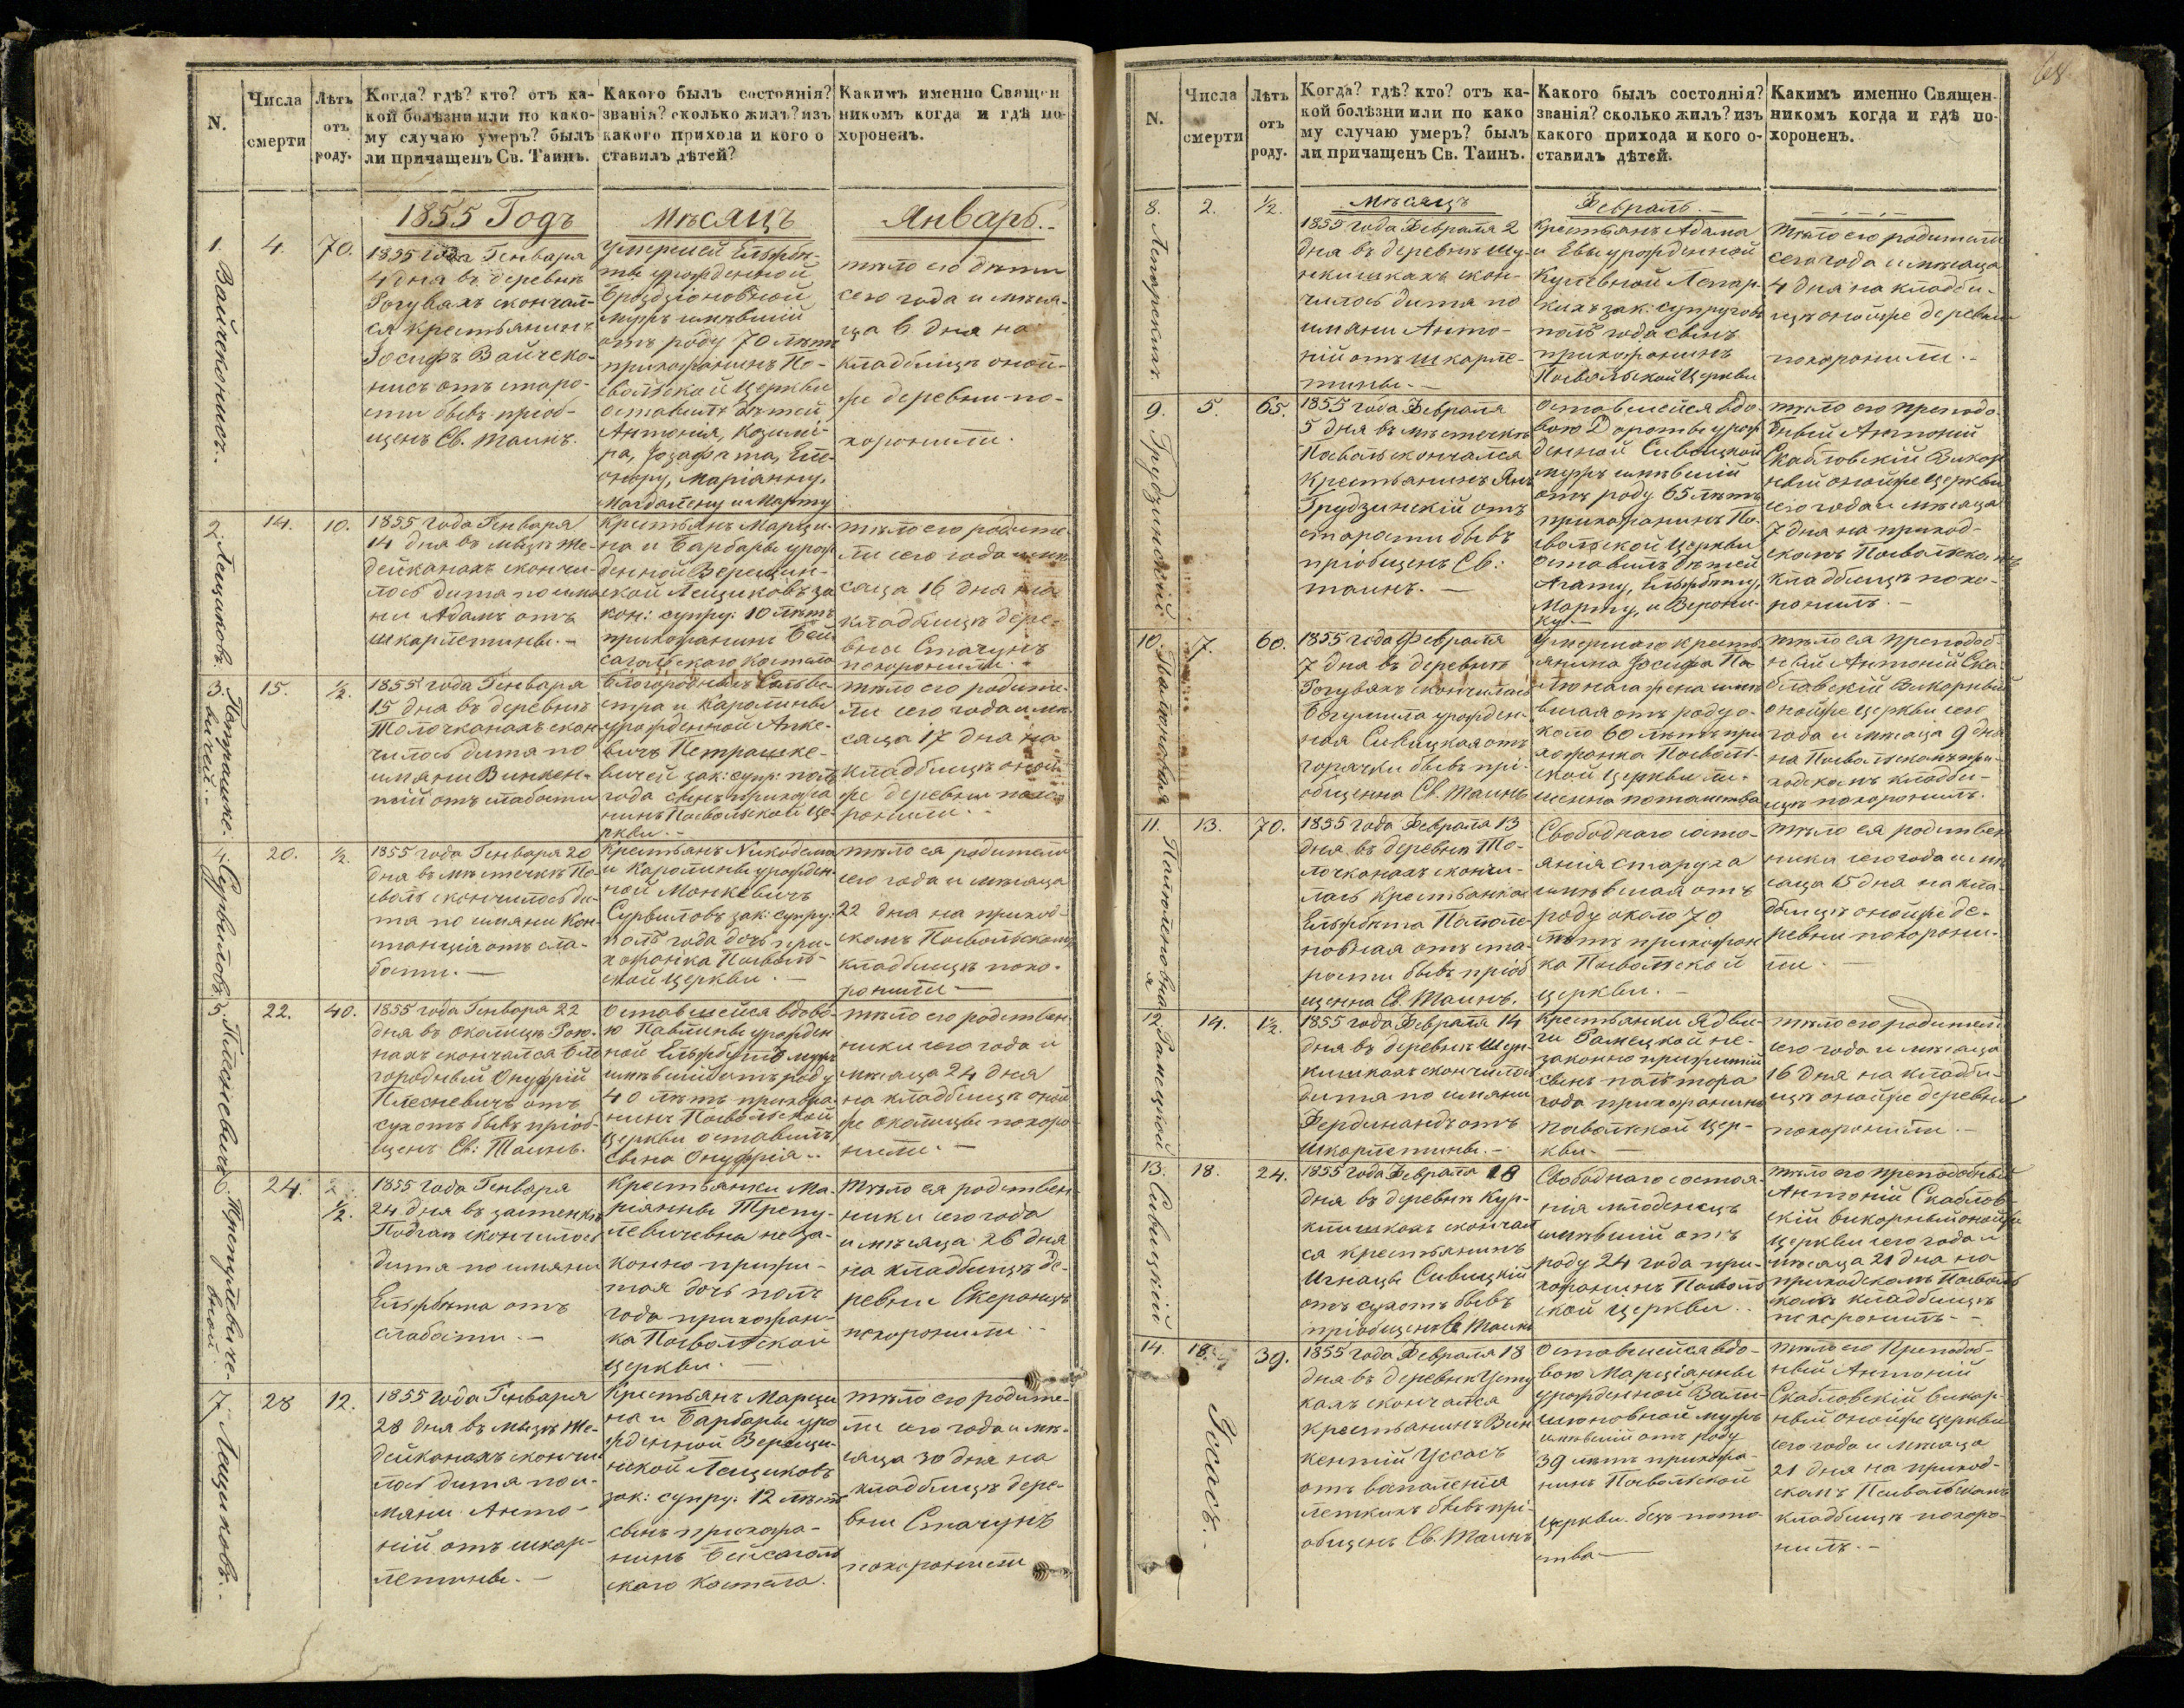 N.
Числа смерти
Лѣтъ отъ роду.
Когда? гдѣ? кто? отъ ка-
кой болѣзни или по како-
му случаю умеръ? былъ
ли причащенъ Св. Таинъ.
Какого былъ состоянія?
званія? сколько жилъ? изъ
какого прихода и кого о
ставилъ дѣтей?
Какимъ именно Священ
никомъ когда и гдѣ по-
хороненъ.
1855 Годъ
Мѣсяцъ
Январь.
1.
4.
70.
1855 года Генваря
4 дня въ деревнѣ
Рогувахъ скончал-
ся крестьянинъ
Іосифъ Вайчеко-
нисъ отъ старо-
сти бывъ пріоб-
щенъ Св. Таинъ.
умершей Ельжбѣ-
ты урожденной
мужъ имѣвшій
отъ роду 70 лѣтъ
прихожанинъ По-
свольской Церкви
оставилъ дѣтей
Антонія, Казимі-
ра, Іозафата, Еле-
онору, Маріанну,
Магдалену и Марту
тѣло его дѣти
сего года и мѣся-
ца 6 дня на
кладбищѣ оной-
же деревни по-
хоронили.
2.
Лещиковъ
14.
10.
1855 года Генваря
14 дня въ мызѣ Же-
дейканахъ скончи-
лось дитя по имя
ни Адамъ отъ
шкарлетины.
Крестьянъ Марци-
на и Барбары урож
денной Верещин-
ской Лещиковъ за
кон: супру: 10 лѣтъ
прихожанинъ Бей
сагольскаго Костела
тѣло его родите-
ли сего года и мѣ
сяца 16 дня на
кладбищѣ дере-
вни Стачунъ
похоронили.
3.
Петрашке-
вичей
15.
½.
1855 года Генваря
15 дня въ деревнѣ
Толочканахъ скон-
чилось дитя по
имяни Винкен-
тій отъ слабости
Благородныхъ Сильве-
стра и Каролины
урожденной Анке-
вичъ Петрашке-
вичей зак: супр: полъ
года сынъ прихожа
нинъ Посвольской Це-
ркви.
тѣло его родите-
ли сего года и мѣ-
сяца 17 дня на
кладбищѣ оной
же деревни похо-
ронили.
4.
Сурвиловъ
20.
½.
1855 года Генваря 20
дня въ мѣстечкѣ По-
сволѣ скончилось ди-
тя по имяни Кон-
станція отъ сла-
бости.
Крестьянъ Никодема
и Каролины урожден-
ной Монкевичъ
Сурвиловъ зак: супру:
полъ года дочь при-
хожанка Посволь-
ской Церкви.
тѣло ея родители
сего года и мѣсяца
22 дня на приход-
скомъ Посвольскомъ
кладбищѣ похо-
ронили
5.
22.
40.
1855 года Генваря 22
дня въ околицѣ Рою-
нахъ скончался Бла
городный Онуфрій
Плесневичъ отъ
сухотъ бывъ пріоб-
щенъ Св: Таинъ.
Оставшейся вдово-
ю Павлины урожден
ной мужъ
имѣвшій отъ роду
40 лѣтъ прихожа-
нинъ Посвольской
Церкви оставилъ
сына Онуфрія
тѣло его родствен-
ники сего года и
мѣсяца 24 дня
на кладбищѣ оной
же околицы похоро-
нили.
6.
24.
½.
1855 года Генваря
24 дня въ застенкѣ
скончилось
дитя по имяни
Ельжбѣта отъ
слабости.
Крестьянки Ма-
ріянны Трепу-
левичевны неза-
конно прижи-
тая дочь полъ
года прихожан-
ка Посвольской
Церкви.
тѣло ея родствен-
ники сего года
и мѣсяца 26 дня
на кладбищѣ де-
ревни
похоронили.
7.
Лещиковъ
28
12.
1855 года Генваря
28 дня въ мызѣ Же-
дейканахъ скончи
лось дитя по и-
мяни Анто-
ній отъ шкар-
летины.
Крестьянъ Марци
на и Барбары уро
жденной Верещи-
нской Лещиковъ
зак: супру: 12 лѣтъ
сынъ прихожа-
нинъ Бейсаголь
скаго Костела.
тѣло его родите-
ли сего года и мѣ-
сяца 30 дня на
кладбищѣ дере-
вни Стачунъ
похоронили
68.
N.
Числа смерти
Лѣтъ отъ роду.
Когда? гдѣ? кто? отъ ка-
кой болѣзни или по како
му случаю умеръ? былъ
ли причащенъ Св. Таинъ.
Какого былъ состоянія?
званія? сколько жилъ? изъ
какого прихода и кого о-
ставилъ дѣтей.
Какимъ именно Священ-
никомъ когда и гдѣ по-
хороненъ.
Мѣсяцъ
Февраль.
8.
2.
½.
1855 года Февраля 2
дня въ деревнѣ Шу-
нкишкахъ скон-
чилось дитя по
имяни Анто-
ній отъ шкарле-
тины.
Крестьянъ Адама
и Евы урожденной
скихъ зак: супруговъ
полъ года сынъ
прихожанинъ
Посвольской Церкви
тѣло его родители
сего года и мѣсяца
4 дня на кладби-
щѣ онойже деревни
похоронили.
9.
Грудзинскій
5.
65.
1855 года Февраля
5 дня въ мѣстечкѣ
Посволѣ скончался
Крестьянинъ Янъ
Грудзинскій отъ
старости бывъ
пріобщенъ Св:
таинъ.
Оставшейся вдо-
вою Дороты урож
денной Сивицкой
мужъ имѣвшій
отъ роду 65 лѣтъ
прихожанинъ По-
свольской Церкви
оставилъ дѣтей
Агату, Ельжбѣту,
Марту, и Верони-
ку.
тѣло его преподо-
бный Антоній
Скабловскій Викар
ный онойже Церкви
сего года и мѣсяца
7 дня на приход-
скомъ Посвольскомъ
кладбищѣ похо-
ронилъ.
10.
7.
60.
1855 года Февраля
7 дня въ деревнѣ
Рогувахъ скончилась
Богумила урожден-
ная Сивицкая отъ
горячки бывъ прі-
общенна Св. Таинъ
умершаго крестья
янина Іосифа Па
люнаса жена имѣ
вшая отъ роду о-
коло 60 лѣтъ при
хожанка Посволь-
ской Церкви ли-
шенна потомства
тѣло ея преподоб-
ный Антоній Ска-
бловскій Викарный
онойже Церкви сего
года и мѣсяца 9 дня
на Посвольскомъ при-
ходскомъ кладби-
щѣ похоронилъ.
11.
13.
70.
1855 года Февраля 13
дня въ деревнѣ То-
лочканахъ скончи-
лась крестьянка
Ельжбѣта
отъ ста-
рости бывъ пріоб
щенна Св. Таинъ.
Свободнаго состо-
янія старуха
имѣвшая отъ
роду около 70
лѣтъ прихожан
ка Посвольской
Церкви.
тѣло ея родствен
ники сего года и мѣ
сяца 15 дня на кла-
дбищѣ онойже де-
ревни похорони-
ли.
12.
Рамецкой
14.
1½.
1855 года Февраля 14
дня въ деревнѣ Шун-
кишкахъ скончилось
дитя по имяни
Фердинандъ отъ
Шкарлетины.
Крестьянки Ядви-
ги Рамецкой не-
законно прижитый
сынъ полтора
года прихожанинъ
Посвольской Цер-
кви.
тѣло его родители
сего года и мѣсяца
16 дня на кладби-
щѣ онойже деревни
похоронили.
13.
Сивицкій
18.
24.
1855 года Февраля 18
дня въ деревнѣ Кур-
клишкахъ скончал
ся крестьянинъ
Игнацы Сивицкій
отъ сухотъ бывъ
пріобщенъ Св Таинъ
Свободнаго состоя-
нія младенецъ
имѣвшій отъ
роду 24 года при-
хожанинъ Посволь
ской Церкви.
тѣло его преподобный
Антоній Скаблов-
скій викарный онойже
Церкви сего года и
мѣсяца 21 дня на
приходскомъ Посволь
скомъ кладбищѣ
похоронилъ.
14.
Уссасъ.
18.
39.
1855 года Февраля 18
дня въ деревнѣ
кахъ скончался
крестьянинъ Вин
кентій Уссасъ
отъ воспаленія
легкихъ бывъ прі-
общенъ Св. Таинъ
Оставшейся вдо-
вою Марціанны
урожденной
мужъ
имѣвшій отъ роду
39 лѣтъ прихожа-
нинъ Посвольской
Церкви. безъ пото-
мства
тѣло его Преподоб-
ный Антоній
Скабловскій викар-
ный онойже Церкви
сего года и мѣсяца
21 дня на приход-
скомъ Посвольскомъ
кладбищѣ похоро-
нилъ.